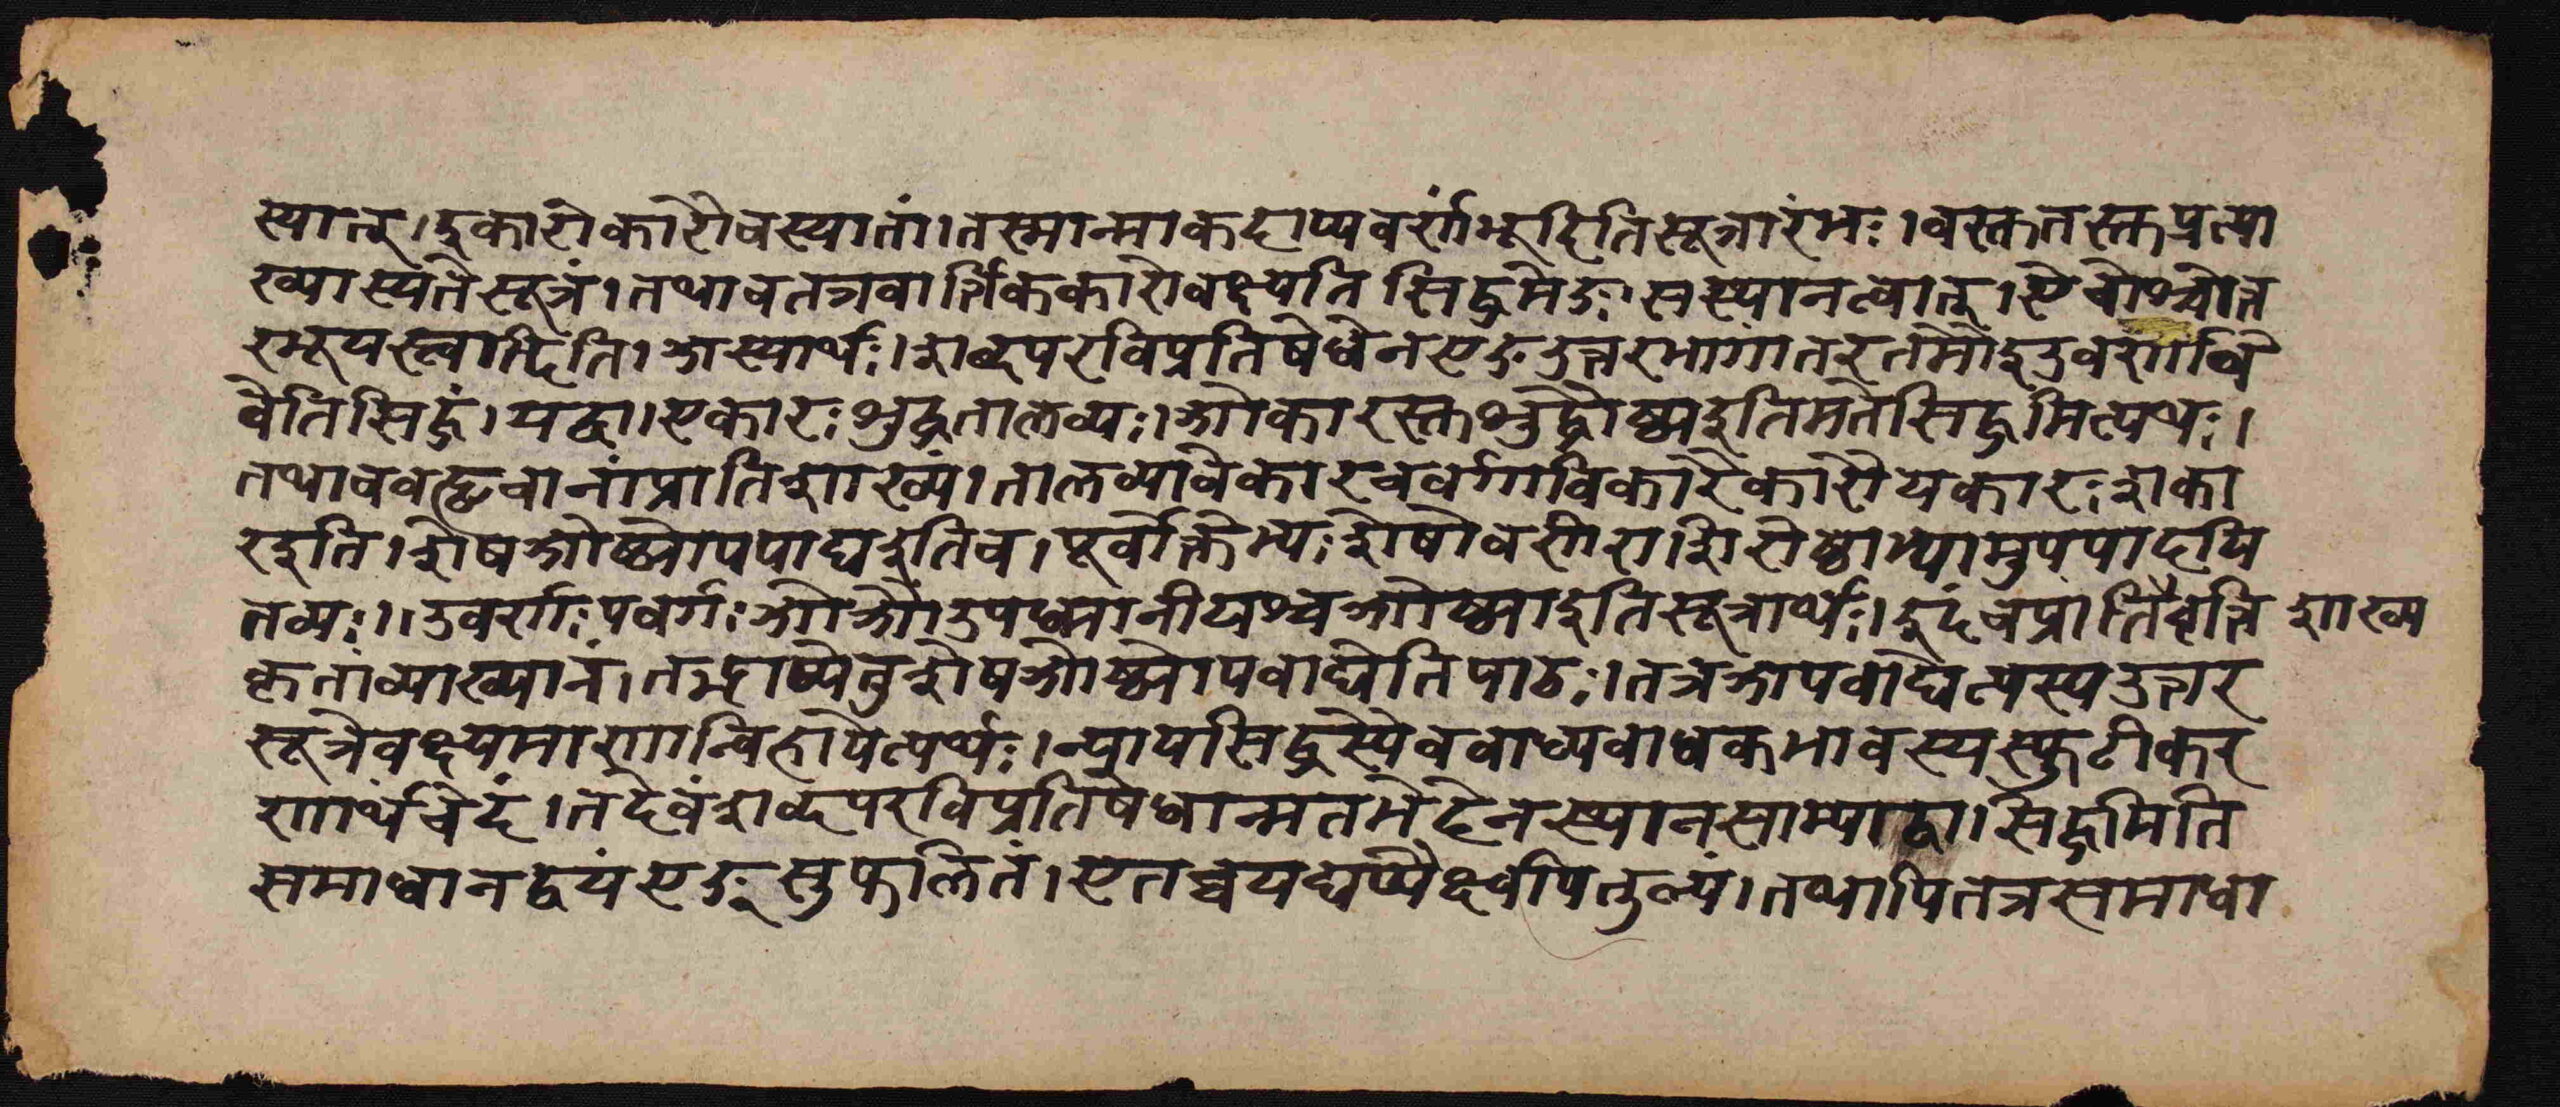 स्यात् । इकारोकारौ च स्यातां । तस्मान्मा कदाप्यवर्णं भूदिति सूत्रारंभः । वस्तुतस्तु प्रत्या
ख्यास्यते सूत्रं । तथा च तत्र वार्त्तिककारो वक्ष्यति सिद्धमेङः सस्थानत्वात् । ऐचोश्चोत्त
रभूयस्त्वादिति । अस्यार्थः । शब्दपरविप्रतिषेधेन एङ उत्तरभागांतरतमौ इउवर्णावि
वेति सिद्धं । यद्वा । एकारः शुद्धतालव्यः । ओकारस्तु शुद्धौष्ठ्य इति मते सिद्धमित्यर्थः ।
तथा च बह्वृचानां प्रातिशाख्यं । तालव्यावेकारचवर्गाविकारैकारौ यकारः शका
र इति । शेष ओष्ठ्योपपाद्य इति च । पूर्वोक्तेभ्यः शेषो वर्णराशिरोष्ठाभ्यामुपपादयि
तव्यः ॥ उवर्णः पवर्गः ओ औ उपध्मानीयश्च ओष्ठ्या इति सूत्रार्थः । इदं च प्रातिवृत्ति शाख्य
कृतां व्याख्यानं । तद्भाष्ये तु शेष ओष्ठ्योपवाद्येति पाठः । तत्र अपवाद्येत्यस्य उत्तर
सूत्रे वक्ष्यमाणान्विहायेत्यर्थः । न्यायसिद्धस्यैव बाध्यबाधकभावस्य स्फुटीकर
णार्थं चेदं । तदेवं शब्दपरविप्रतिषेधान्मतभेदेन स्थानसाम्याद्वा । सिद्धमिति
समाधानद्वयं एङ्सु फलितं । एतच्च यद्यप्यैक्ष्वपि तुल्यं । तथापि तत्र समाधा